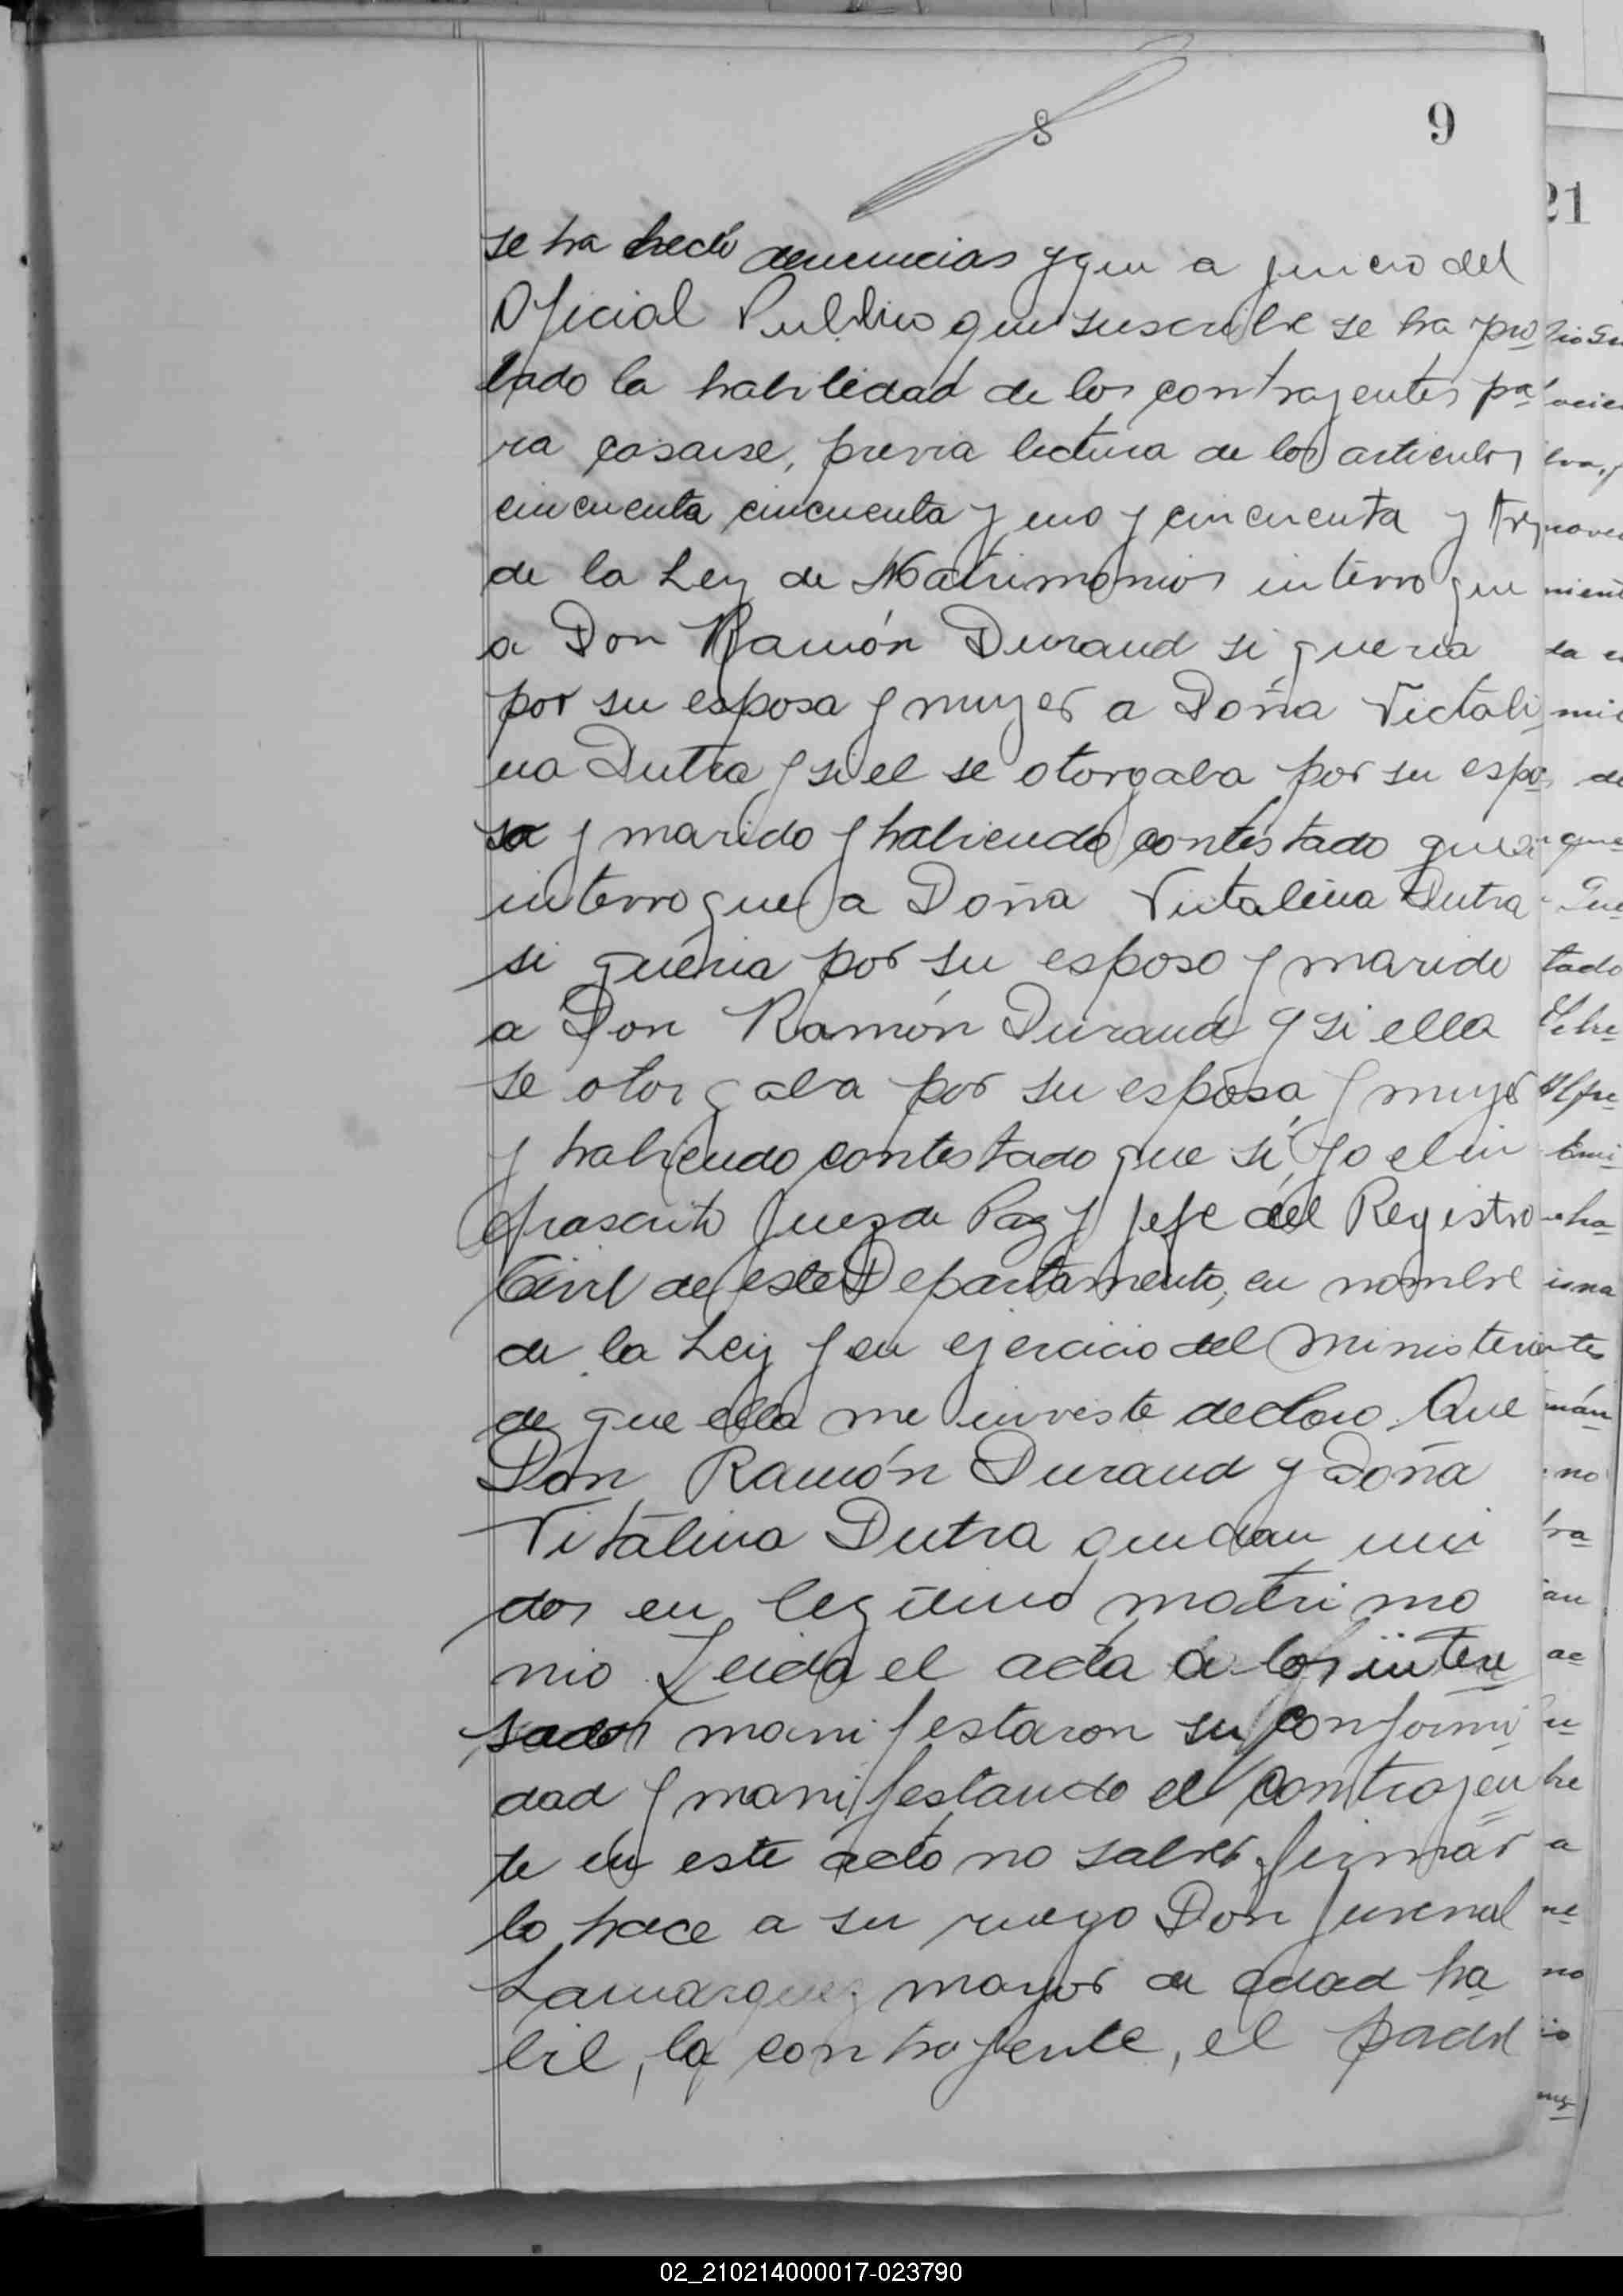 8
9
21
se ha hecho denuncias y que a juicio del
Oficial Publico que suscribe se ha pro
bado la habilidad de los contrayentes pa
ra casarse, previa lectura de los articulos
cincuenta cincuenta y uno y cincuenta y tres
de la Ley de Matrimonios interrogue
a Don Ramón Durand si queria
por su esposa y mujer a Doña Victali
na Dutra y si el se otorgaba por su espo
so y marido y habiendo contestado que si
interrogue a Doña Victalina Dutra
si queria por su esposo y marido
a Don Ramón Durand y si ella
se otorgaba por su esposa y mujer
y habiendo contestado que si, yo el in
frascrito Juez de Paz y Jefe del Registro
Civil de este Departamento, en nombre
de la Ley y en ejercicio del ministerio
de que ella me inviste declaro. Que
Don Ramón Durand y Doña
Vitalina Dutra quedan uni
dos en legitimo matrimo
nio. Leida el acta a los intere
sados manifestaron su conformi
dad y manifestando el contrayen
te en este acto no saber firmar
lo hace a su ruego Don Juvenal
Lamarquez mayor de edad ha
bil, la contrayente, el padre
02_210214000017-023790